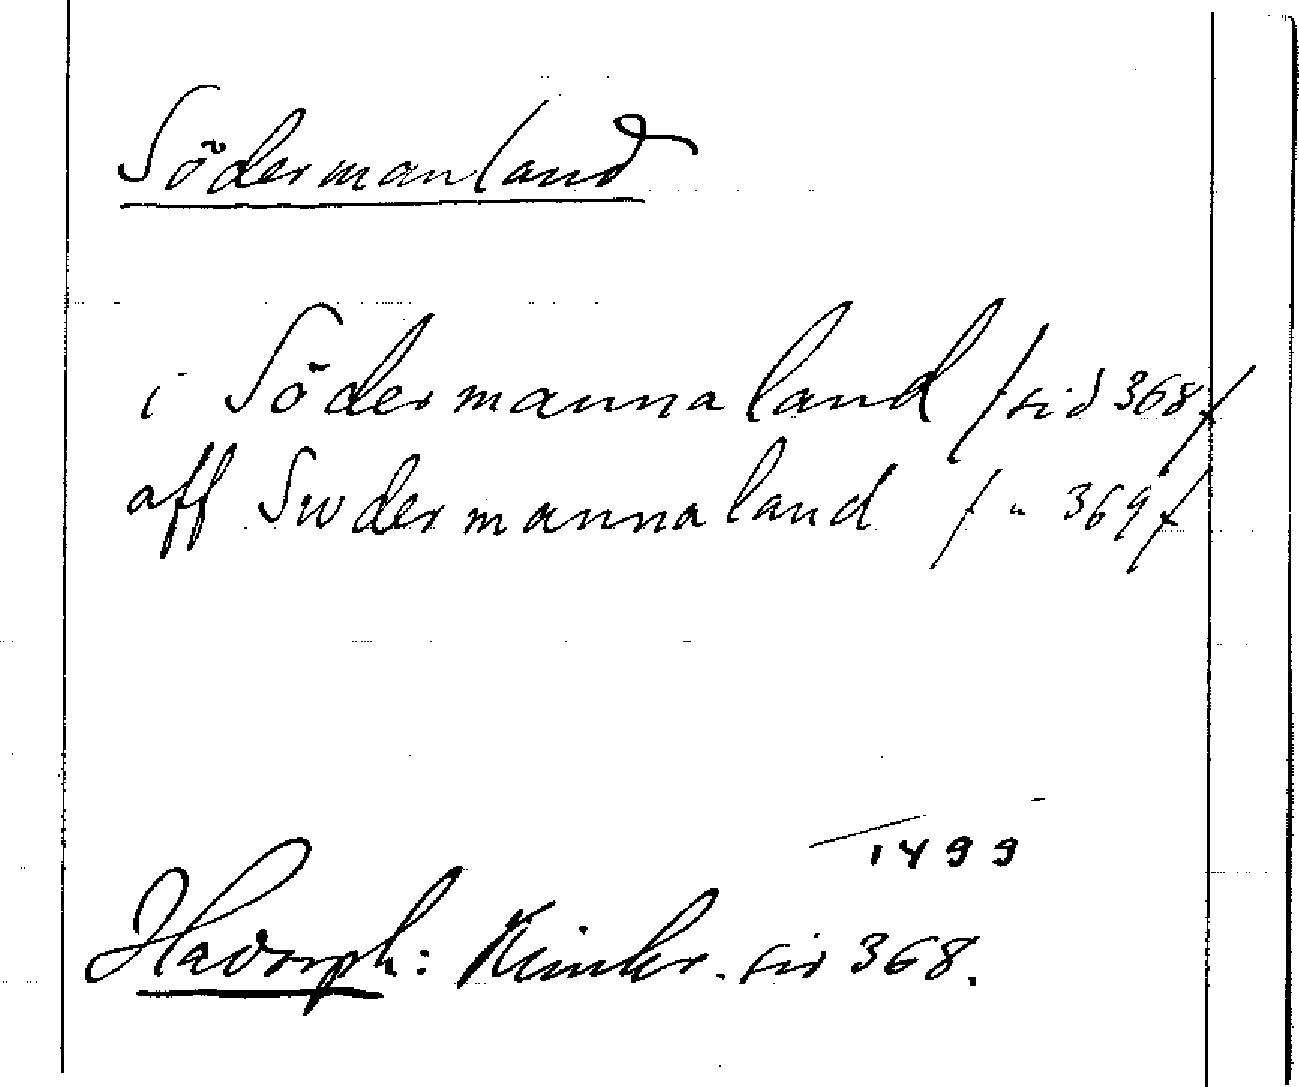 Södermanland
i Södermannaland /sid 368/
aff Swdermannaland / " 369/
1499
Hadorph: Rimkr. sid 368.